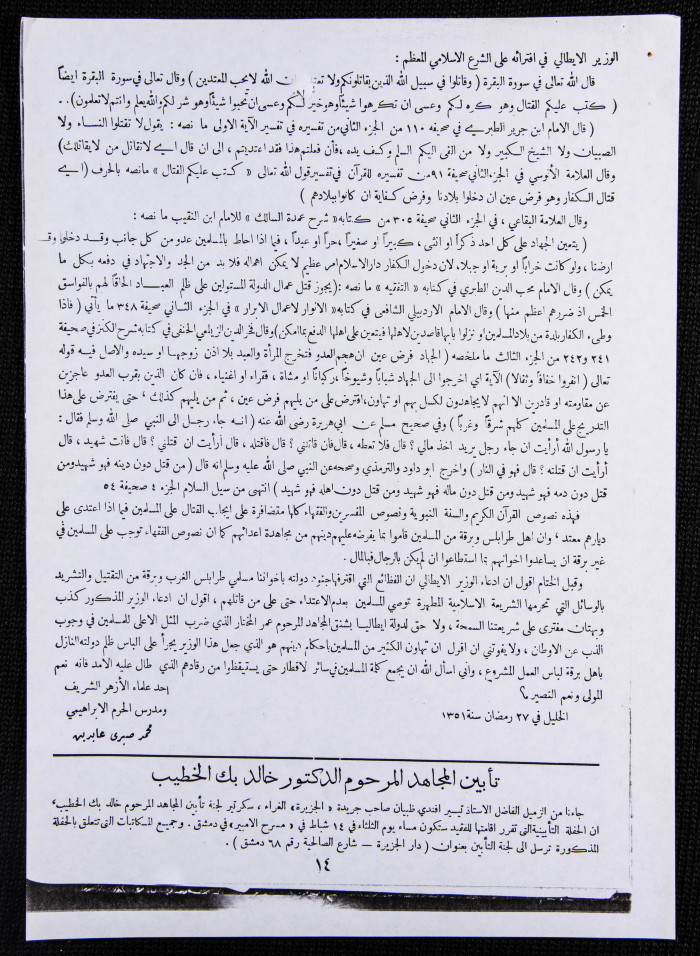 الوزير الايطالي في افترائه على الشرع الاسلامي المعظم :
قال الله تعالى في سورة البقرة ( وقاتلوا في سبيل الله الذين يقاتلونكم ولا تعتدوا ان الله لايحب المعتدين ) وقال تعالى في سورة البقرة ايضاً
( كتب عليكم القتال وهو كره لكم وعسى ان تكرهوا شيئاً وهو خير لكم وعسى ان تحبوا شيئاً وهو شر لكم والله يعلم وانتم لا تعلمون ) . .
( قال الامام ابن جرير الطبري في صحيفه ١١٠ من الجزء الثاني من تفسيره في تفسير الآية الاولى ما نصه : يقول لا تقتلوا النساء ولا
الصبيان ولا الشيخ الكبير ولا من القى اليكم السلم وكف يده ، فأن فعلتم هذا فقد اعتديتم ، الى ان قال اي لا تقاتل من لا يقاتلك )
وقال العلامة الألوسي في الجزء الثاني صحيفة ٩١ من تفسيره للقرآن في تفسير قول الله تعالى « كتب عليكم القتال » مانصه بالحرف ( اي
قتال الكفار وهو فرض عين ان دخلوا بلادنا وفرض كفاية ان كانوا ببلادهم )
وقال العلامة البقاعي ، في الجزء الثاني صحيفة ٣٠٥ من كتابه « شرح عمدة السالك » للامام ابن النقيب ما نصه :
( يتعين الجهاد على كل احد ذكراً او انثى ، كبيراً او صغيراً ، حراً او عبداً ، فيما اذا احاط بالمسلمين عدو من كل جانب وقد دخلوا وقـ
ارضنا ، ولو كانت خراباً او برية او جبلا ، لان دخول الكفار دار الاسلام امر عظيم لا يمكن اهماله فلا بد من الجد والاجتهاد في دفعه بكل ما
يمكن ) وقال الامام محب الدين الطبري في كتابه « التفقيه » ما نصه : ( يجوز قتل عمال الدولة المستولين على ظلم العباد الحاقاً لهم بالفواسق
الخمس اذ ضررهم اعظم منها ) وقال الامام الاردبيلي الشافعي في كتابه « الانوار لاعمال الابرار » في الجزء الثاني صحيفة ٣٤٨ ما يأتي ( فاذا
وطىء الكفار بلدة من بلاد المسلمين او نزلوا بابها قاصدين لاهلها فيتعين على اهلها الدفع بما امكن ) وقال فخر الدين الزيلعي الحنفي في كتابه شرح الكنز في صحيفة
٢٤١ و ٢٤٢ من الجزء الثالث ما ملخصه ( الجهاد فرض عين ان هجم العدو فتخرج المرأة والعبد بلا اذن زوجها او سيده والاصل فيه قوله
تعالى ( انفروا خفافاً وثقالا ) الآية اي اخرجوا الى الجهاد شباباً وشيوخاً ، ركباناً او مشاة ، فقراء او اغنياء ، فان كان الذين بقرب العدو عاجزين
عن مقاومته او قادرين الا انهم لا يجاهدون لكسل بهم او تهاون ، افترض على من يليهم فرض عين ، ثم من يليهم كذلك ، حتى يفترض على هذا
التدريج على المسلمين كلهم شرقاً وغرباً ) وفي صحيح مسلم عن ابي هريرة رضى الله عنه ( انه جاء رجل الى النبي صلى الله وسلم فقال :
يا رسول الله أرأيت ان جاء رجل يريد اخذ مالي ؟ قال فلا تعطه ، قال فان قاتلني ؟ قال فاقتله ، قال أرأيت ان قتلني ؟ قال فانت شهيد ، قال
أرأيت ان قتلته ؟ قال فهو في النار ) واخرج ابو داود والترمذي وصححه عن النبي صلى الله عليه وسلم انه قال ( من قتل دون دينه فهو شهيد ومن
قتل دون دمه فهو شهيد ومن قتل دون ماله فهو شهيد ومن قتل دون اهله فهو شهيد ) انتهى من سبل السلام الجزء ٤ صحيفة ٥٤
فهذه نصوص القرآن الكريم والسنة النبوية ونصوص المفسرين والفقهاء كلها متضافرة على ايجاب القتال على المسلمين فيما اذا اعتدى على
ديارهم معتد ، وان اهل طرابلس وبرقة من المسلمين قاموا بما يفرضه عليهم دينهم من مجاهدة اعدائهم كما ان نصوص الفقهاء توجب على المسلمين في
غير برقة ان يساعدوا اخوانهم بما استطاعوا ان لم يكن بالرجال فبالمال .
وقبل الختام اقول ان ادعاء الوزير الايطالي ان الفظائع التي اقترفها جنود دولته باخواننا مسلمي طرابلس الغرب وبرقة من التقتيل والتشريد
بالوسائل التي تحرمها الشريعة الاسلامية المطهرة توصي المسلمين بعدم الاعتداء حتى على من قاتلهم ، اقول ان ادعاء الوزير المذكور كذب
وبهتان مفترى على شريعتنا السمحة ، ولا حق لدولة ايطاليا بشنق المجاهد المرحوم عمر المختار الذي ضرب المثل الاعلى للمسلمين في وجوب
الذب عن الاوطان ، ولا يفوتني ان اقول ان تهاون الكثير من المسلمين باحكام دينهم هو الذي جعل هذا الوزير يجرأ على الباس ظلم دولته النازل
باهل برقة لباس العمل المشروع ، واني اسأل الله ان يجمع كلمة المسلمين في سائر الاقطار حتى يستيقظوا من رقادهم الذي طال عليه الامد فانه نعم
المولى ونعم النصير ؟
احد علماء الأزهر الشريف
الخليل في ٢٧ رمضان سنة ١٣٥١
ومدرس الحرم الابراهيمي
محمد صبرى عابدين
تأبين المجاهد المرحوم الدكتور خالد بك الخطيب
جاءنا من الزميل الفاضل الاستاذ تيسير افندي ظبيان صاحب جريدة « الجزيرة » الغراء ، سكرتير لجنة تأبين المجاهد المرحوم خالد بك الخطيب ،
ان الحفلة التأبينية التى تقرر اقامتها للفقيد ستكون مساء يوم الثلثاء في ١٤ شباط في « مسرح الامبير » في دمشق . وجميع المكاتبات التى تتعلق بالحفلة
المذكورة ترسل الى لجنة التأبين بعنوان ( دار الجزيرة — شارع الصالحية رقم ٦٨ دمشق ) .
١٤